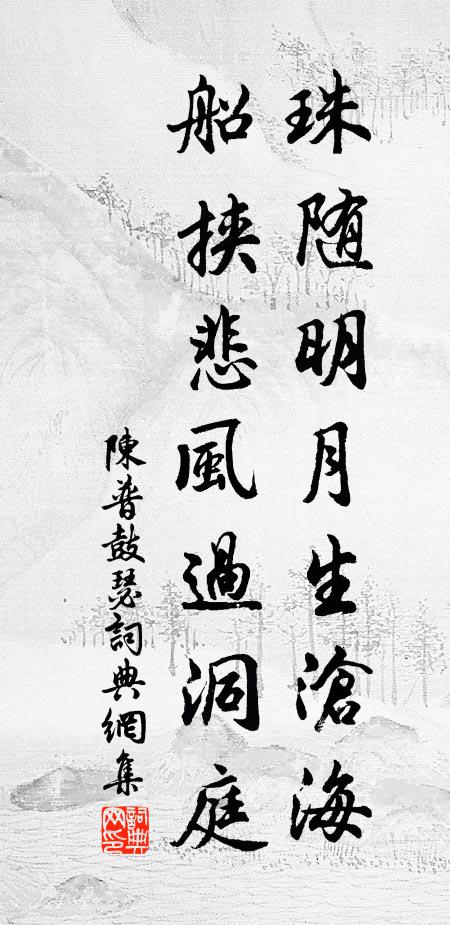 珠随明月生滄海
船挟悲風過洞庭
陳普鼓瑟詞典網集
詞典網印